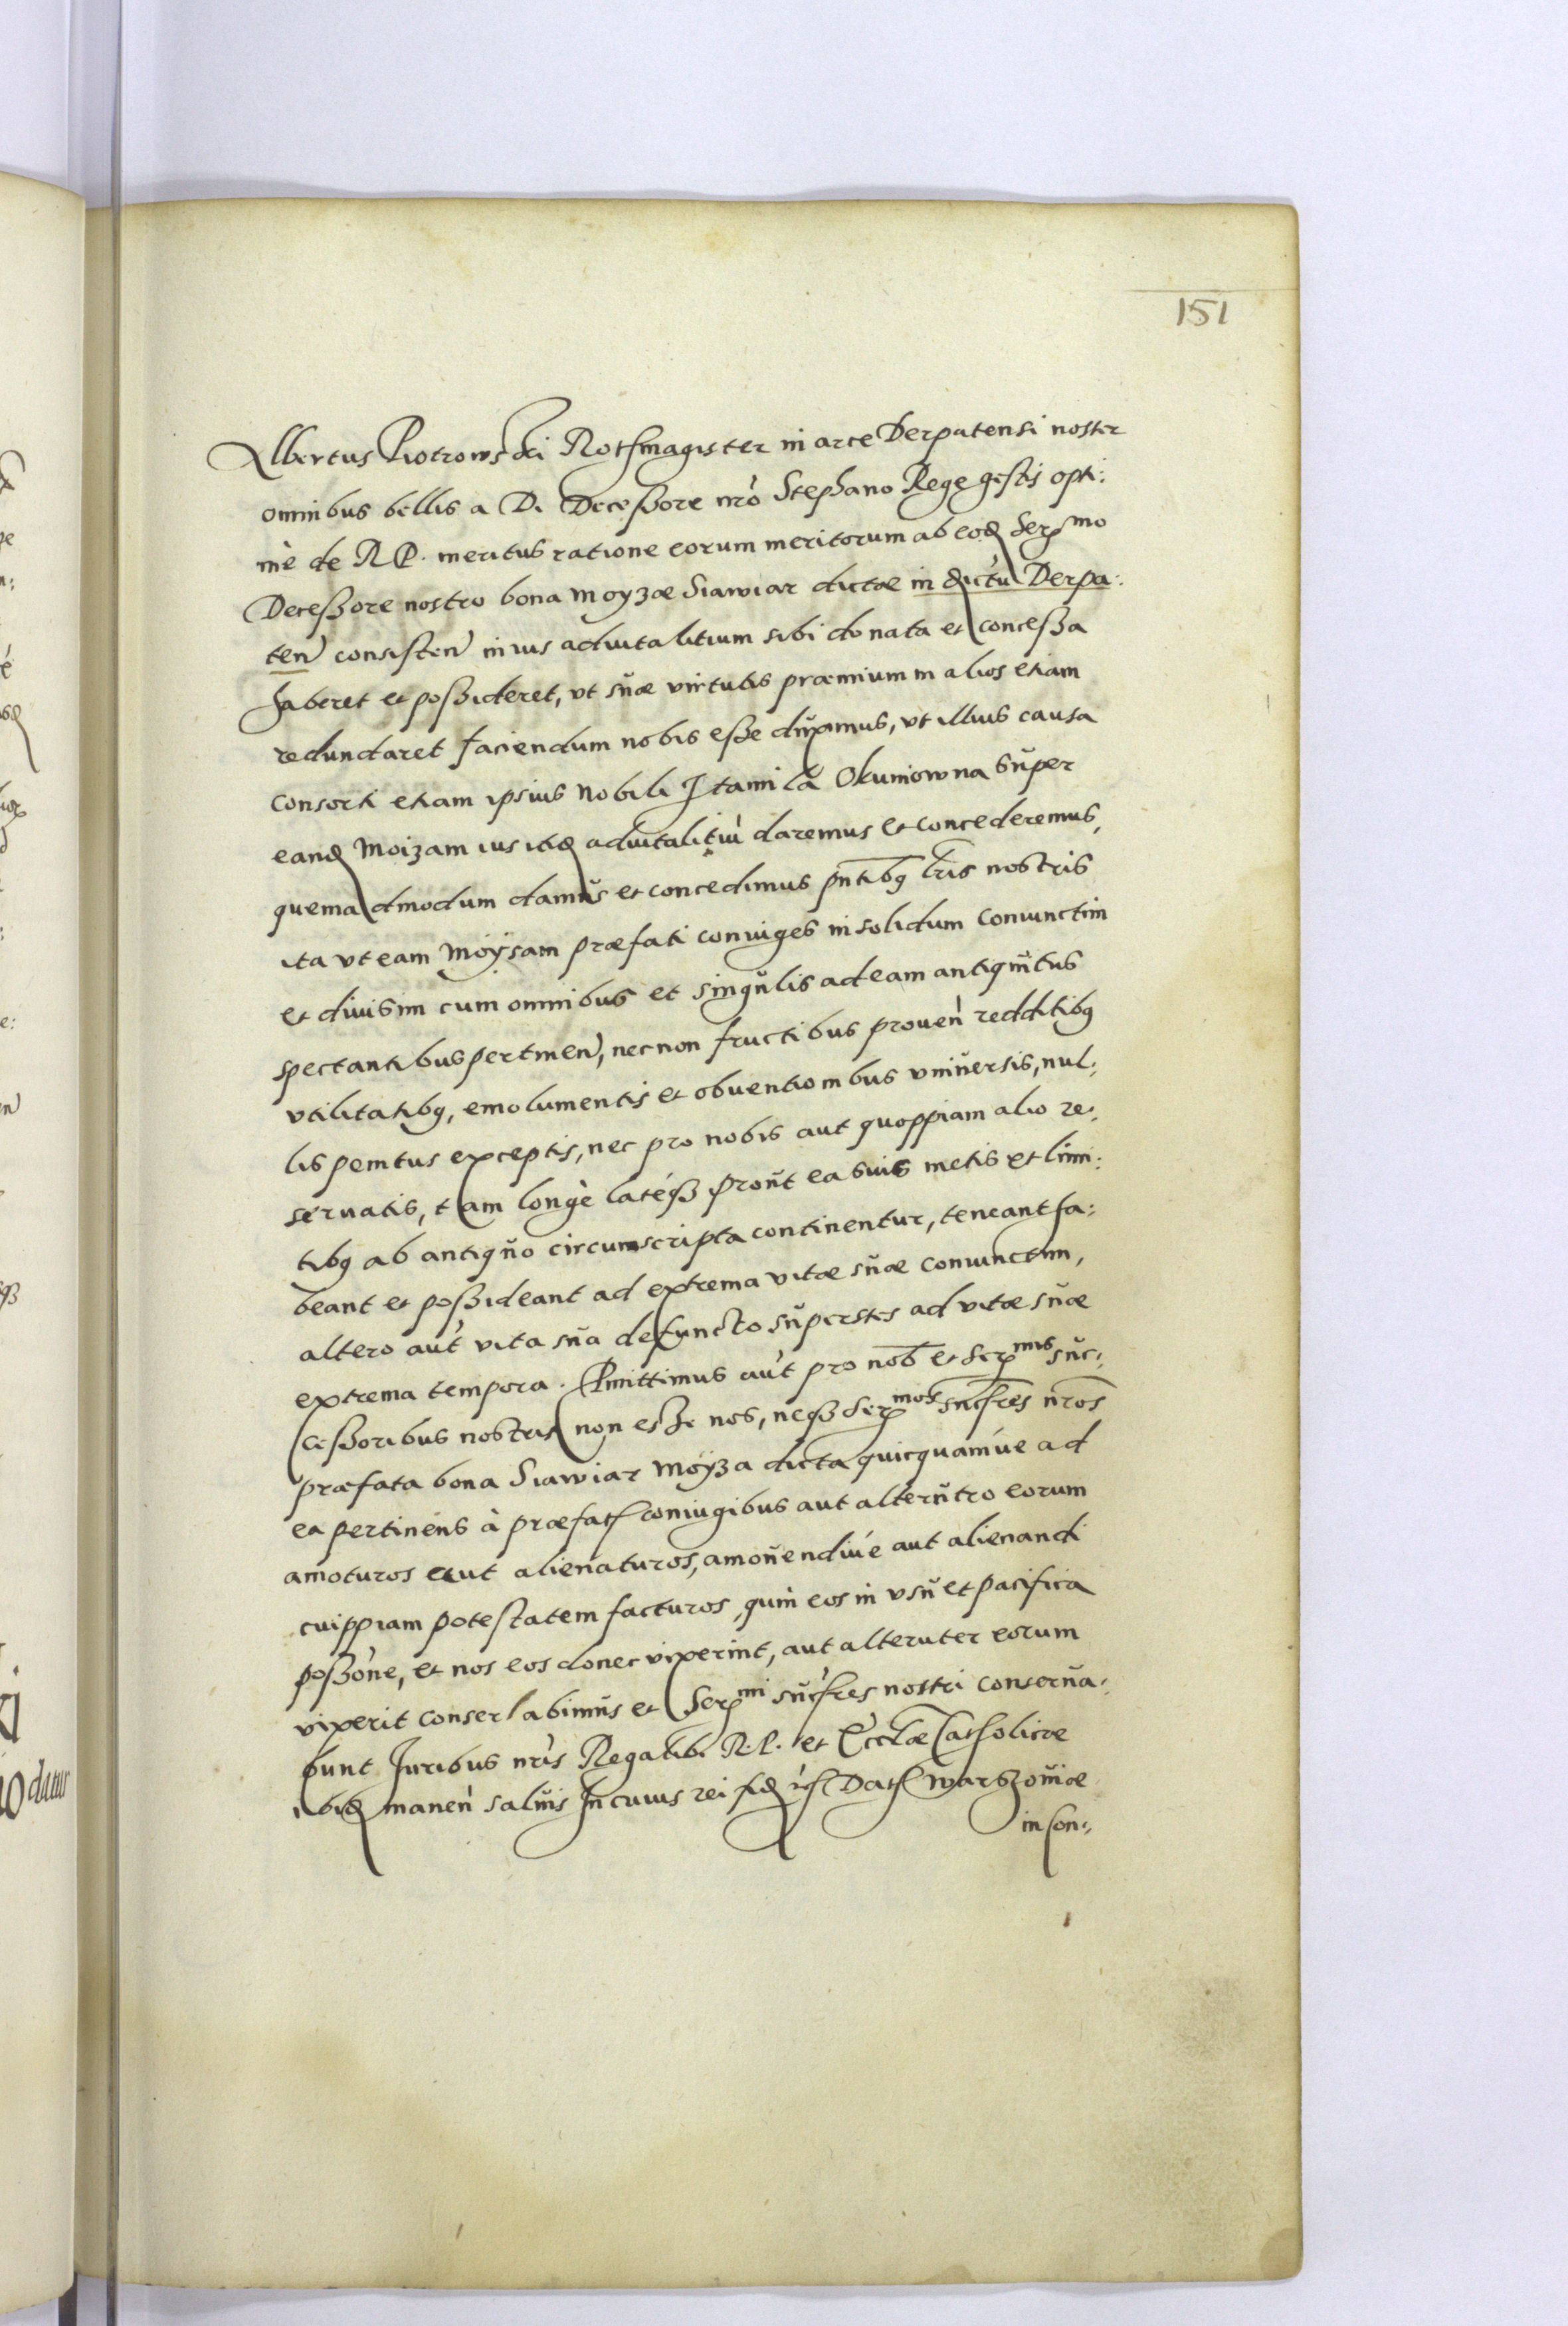 151
Albertus Piotrowski Rothmagister in arce Derpatensi noster
omnibus bellis a D. Decessore nrõ Stephano Rege gestis opti:
mè de R P. meritus ratione eorum meritorum ab eod Sermo
Decessore nostro bona moyzae Siawiar dictae in dictũ Derpa:
ten consisten in ius aduitalitium sibi donata et concessa
haberet et possideret, vt suae virtutis praemium in alios etiam
redundaret faciendum nobis esse duximus, vt illius causa
consorti etiam ipsius Nobili Itamila Okuniowna super
eand Moizam ius itid aduitalitiũ daremus et concederemus,
quemadmodum damus et concedimus pñtibq lris nostris
ita vt eam Moysam praefati coniuges in solidum coniunctim
et diuisim cum omnibus et singulis ad eam antiquitus
spectantibus pertinen, necnon fructibus prouen redditibq
vtilitatibq, emolumentis et obuentionibus vniuersis, nul:
lis penitus exceptis, nec pro nobis aut quoppiam alio re:
seruatis, tam longè latéqz prout ea suis metis et limi:
tibq ab antiquo circumscripta continentur, teneant ha:
beant et possideant ad extrema vitae suae coniunctim,
altero aut vita sua defuncto superstes ad vitae suae
extrema tempora. Pmittimus aut pro nob et Sermis suc:
cessoribus nostris non esse nos, neqz Sermos sucsres nros
praefata bona Siawiar Moyza dicta quicquamúe ad
ea pertinens à praefat coniugibus aut alterutro eorum
amoturos aut alienaturos, amouendiúe aut alienandi
cuippiam potestatem facturos, quin eos in vsu et pacifica
possone, et nos eos donec vixerint, aut alteruter eorum
vixerit conserlabimus et Sermi sucsres nostri conserua:
bunt Juribus nris Regalib. R. P. et Ecclae Catholicae
ibid manen saluis In cuius rei fid rc Dat Warszouiae
in con: